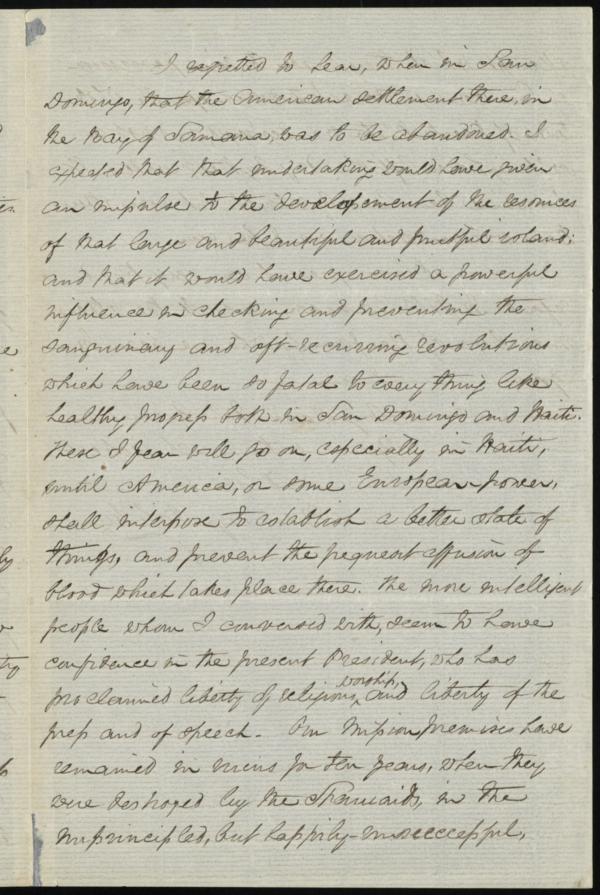 I expected to hear, when in San
Domingo, that the American settlement there, in
the Bay of Samana, was to be abandoned. I
expected that that undertaking would have given
an impulse to the developement of the resources
of that large and beautiful and fruitful island;
and that it would have exercised a powerful
influence in checking and preventing the
sanguinary and oft-recurring revolutions
which have been so fatal to every thing like
healthy progress both in San Domingo and Haiti.
These I fear will go on, especially in Haiti,
until America, or some European power,
shall interpose to establish a better state of
things, and prevent the frequent effusion of
blood which takes place there. The more intelligent
people whom I conversed with, seem to have
confidence in the present President, who has
proclaimed liberty of religious worship, and liberty of the
press and of speech. Our Mission premises have
remained in ruins for ten years, when they
were destroyed by the Spaniards, in the
unprincipled, but happily-unsuccessful,